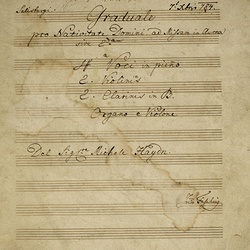 Salisburgi
Graduale
pro Nativitate Domini ad Missam in Auro-
4 Voci in pieno
2. Violinis
2. Clarinis in B.
Organo e Violone
Del Sig:re Michele Haydn.